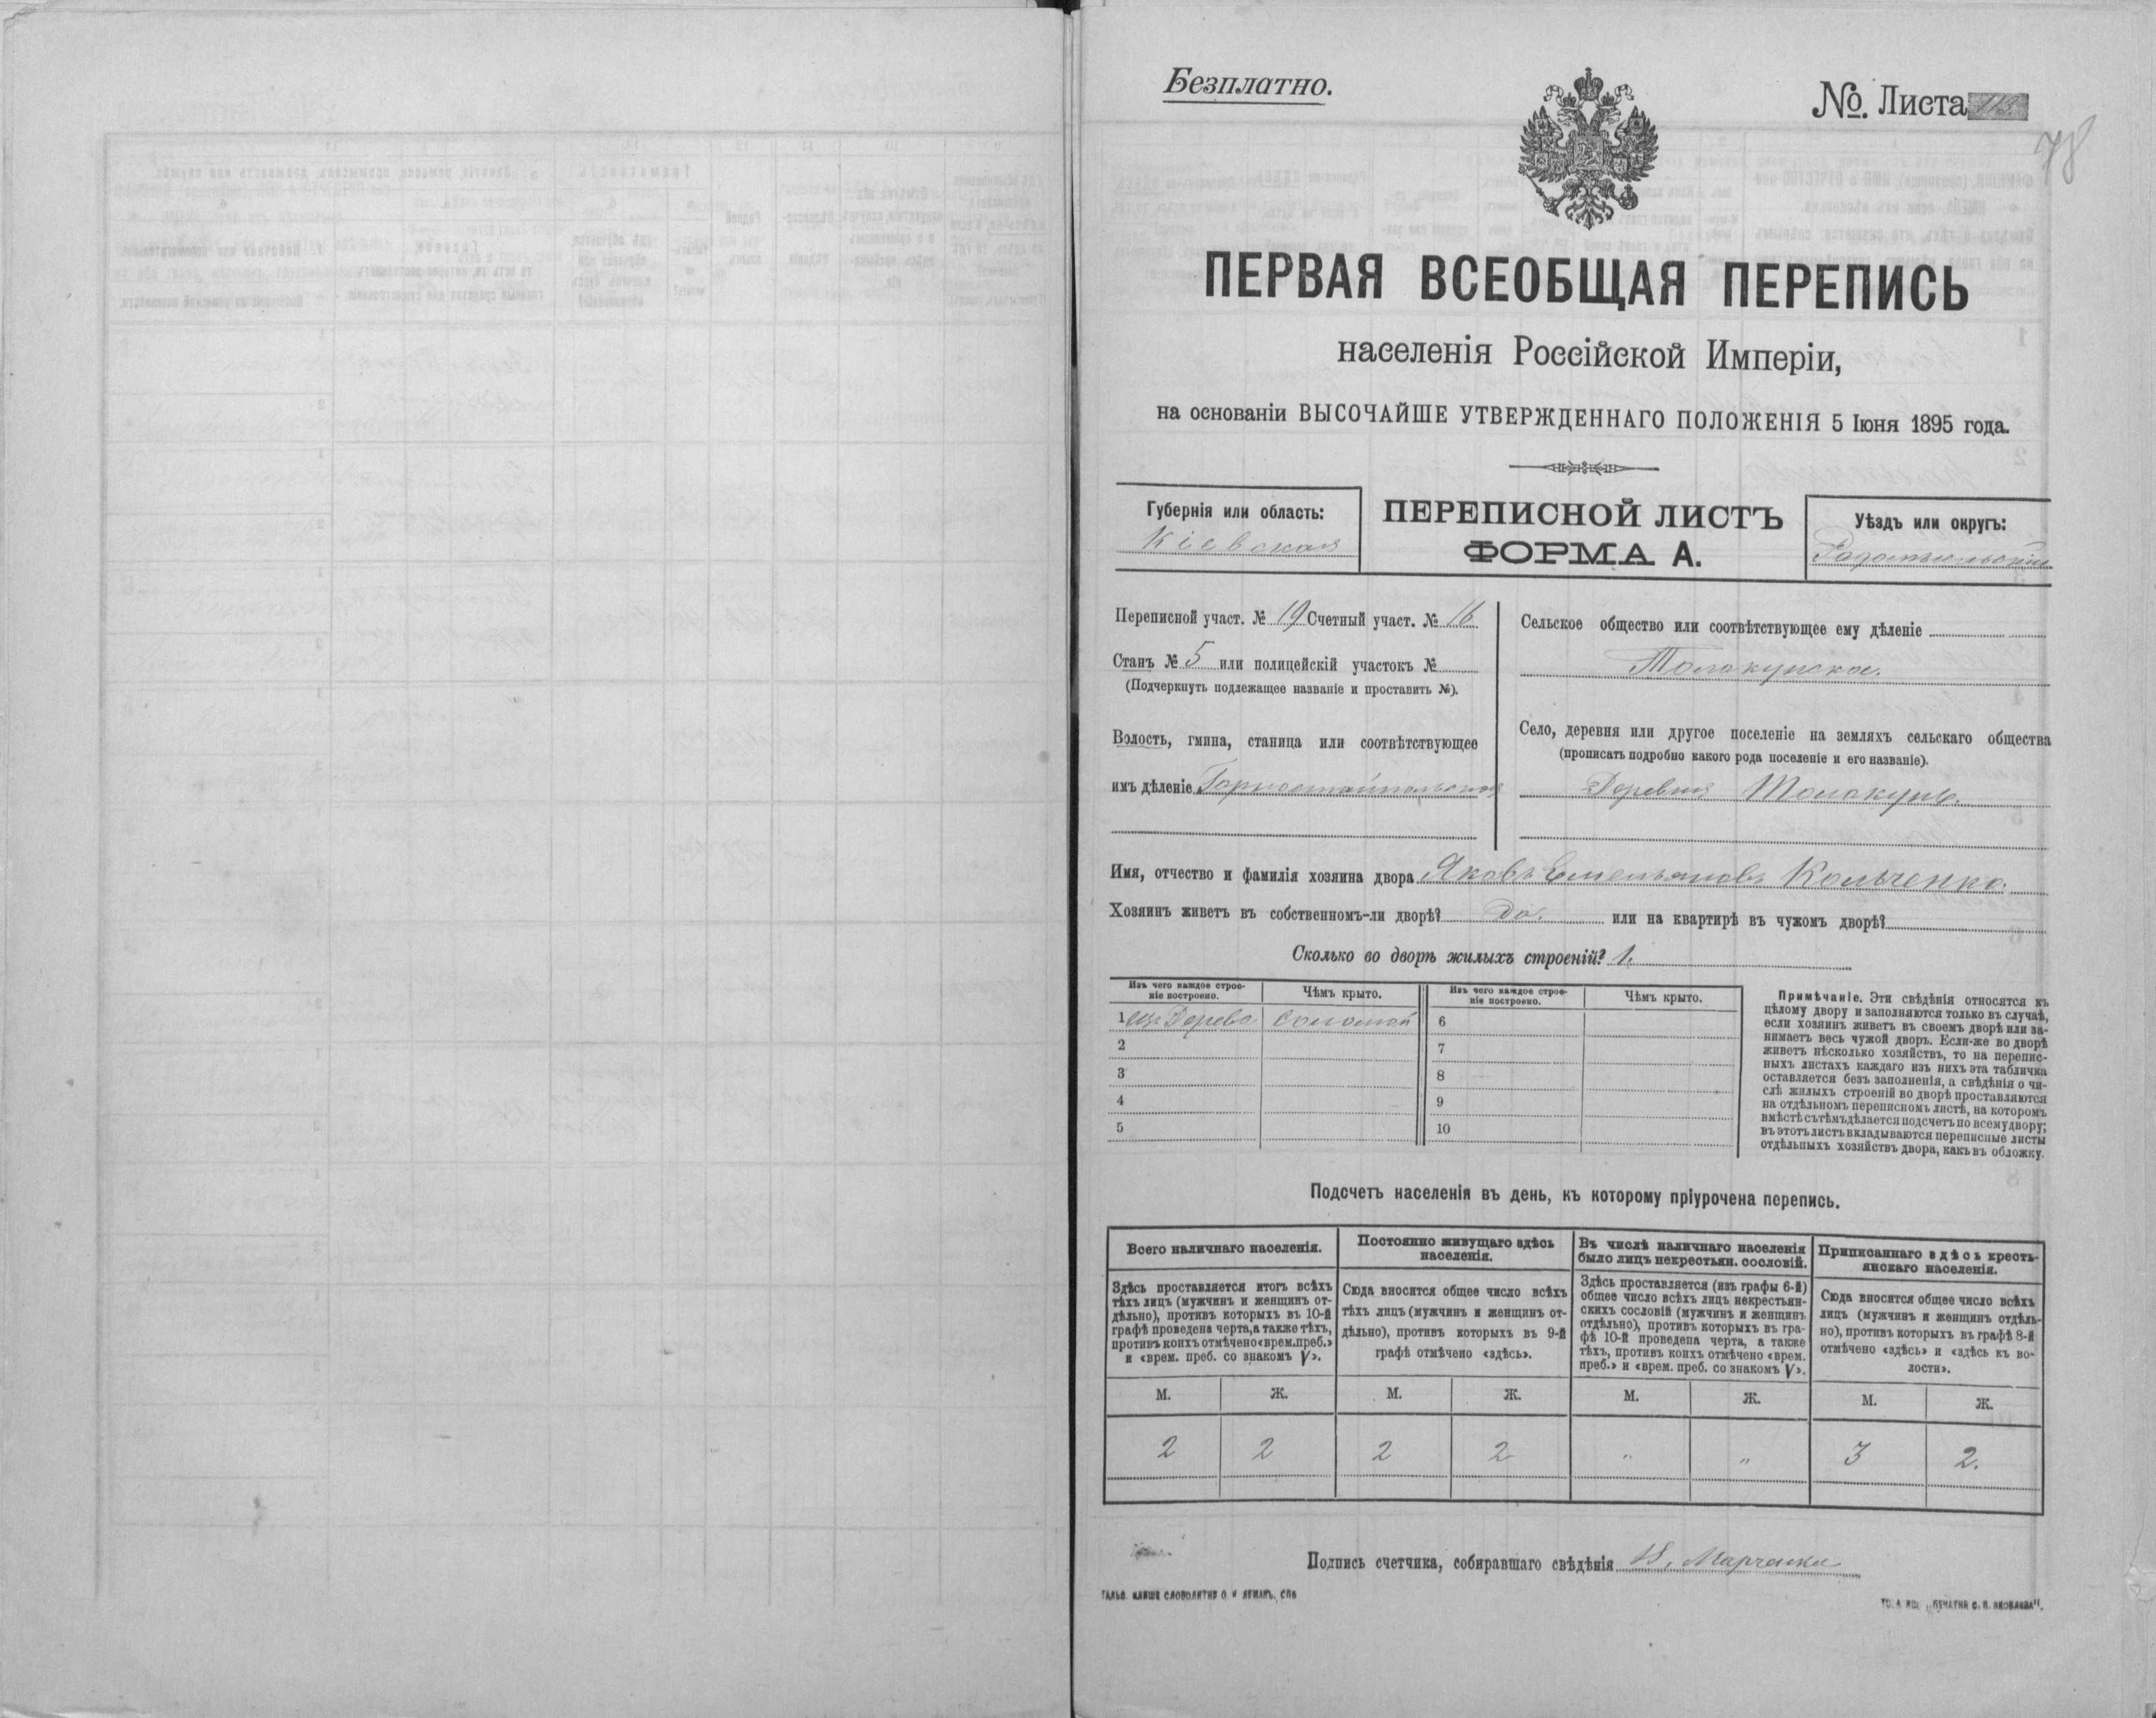 Безплатно.
№. Листа 113.
78
ПЕРВАЯ ВСЕОБЩАЯ ПЕРЕПИСЬ
населенія Россійской Имперіи,
на основаніи ВЫСОЧАЙШЕ УТВЕРЖДЕННАГО ПОЛОЖЕНІЯ 5 Іюня 1895 года.
Губернія или область:
Кіевская
ПЕРЕПИСНОЙ ЛИСТЪ
ФОРМА А.
Уѣздъ или округъ:
Радомысльскій
Переписной участ. № 19 Счетный участ. № 16
Станъ № 5 или полицейскій участокъ №
(Подчеркнуть подлежащее названіе и проставить №).
Волость, гмина, станица или соотвѣтствующее
имъ дѣленіе Горностайпольская
Сельское общество или соотвѣтствующее ему дѣленіе
Толокунское.
Село, деревня или другое поселеніе на земляхъ сельскаго общества
(прописать подробно какого рода поселеніе и его названіе).
Деревня Толокунь.
Имя, отчество и фамилія хозяина двора Яковъ Емельяновъ Кольченко.
Хозяинъ живетъ въ собственномъ-ли дворѣ? Да. или на квартирѣ въ чужомъ дворѣ?
Сколько во дворѣ жилыхъ строеній? 1.
Изъ чего каждое строе-
ніе построено.
Чѣмъ крыто.
Изъ чего каждое строе-
ніе построено.
Чѣмъ крыто.
1 изъ Дерева соломой 6
2 7
3 8
4 9
5 10
Примѣчаніе. Эти свѣдѣнія относятся къ
цѣлому двору и заполняются только въ случаѣ,
если хозяинъ живетъ въ своемъ дворѣ или за-
нимаетъ весь чужой дворъ. Если-же во дворѣ
живетъ нѣсколько хозяйствъ, то на перепис-
ныхъ листахъ каждаго изъ нихъ эта табличка
оставляется безъ заполненія, а свѣдѣнія о чи-
слѣ жилыхъ строеній во дворѣ проставляются
на отдѣльномъ переписномъ листѣ, на которомъ
вмѣстѣ съ тѣмъ дѣлается подсчетъ по всему двору;
въ этотъ листъ вкладываются переписные листы
отдѣльныхъ хозяйствъ двора, какъ въ обложку.
Подсчетъ населенія въ день, къ которому пріурочена перепись.
Всего наличнаго населенія.
Здѣсь проставляется итогъ всѣхъ
тѣхъ лицъ (мужчинъ и женщинъ от-
дѣльно), противъ которыхъ въ 10-й
графѣ проведена черта, а также тѣхъ,
противъ коихъ отмѣчено «врем. преб.»
и «врем. преб. со знакомъ V».
Постоянно живущаго здѣсь
населенія.
Сюда вносится общее число всѣхъ
тѣхъ лицъ (мужчинъ и женщинъ от-
дѣльно), противъ которыхъ въ 9-й
графѣ отмѣчено «здѣсь».
Въ числѣ наличнаго населенія
было лицъ некрестьян. сословій.
Здѣсь проставляется (изъ графы 6-й)
общее число всѣхъ лицъ некрестьян-
скихъ сословій (мужчинъ и женщинъ
отдѣльно), противъ которыхъ въ гра-
фѣ 10-й проведена черта, а также
тѣхъ, противъ коихъ отмѣчено «врем.
преб.» и «врем. преб. со знакомъ V».
Приписаннаго здѣсь кресть-
янскаго населенія.
Сюда вносится общее число всѣхъ
лицъ (мужчинъ и женщинъ отдѣль-
но), противъ которыхъ въ графѣ 8-й
отмѣчено «здѣсь» и «здѣсь къ во-
лости».
М. Ж. М. Ж. М. Ж. М. Ж.
2 2 2 2 " " 3 2.
Подпись счетчика, собиравшаго свѣдѣнія